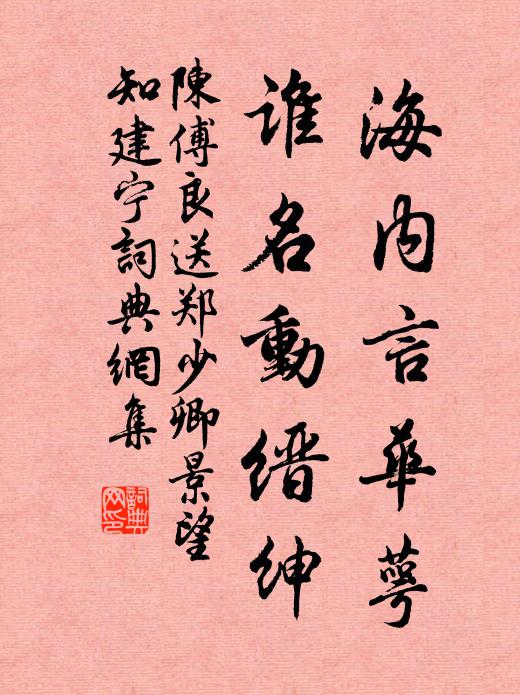 海内言華萼
谁名動缙绅
陳傅良送郑少卿景望
知建宁詞典網集
詞典网印